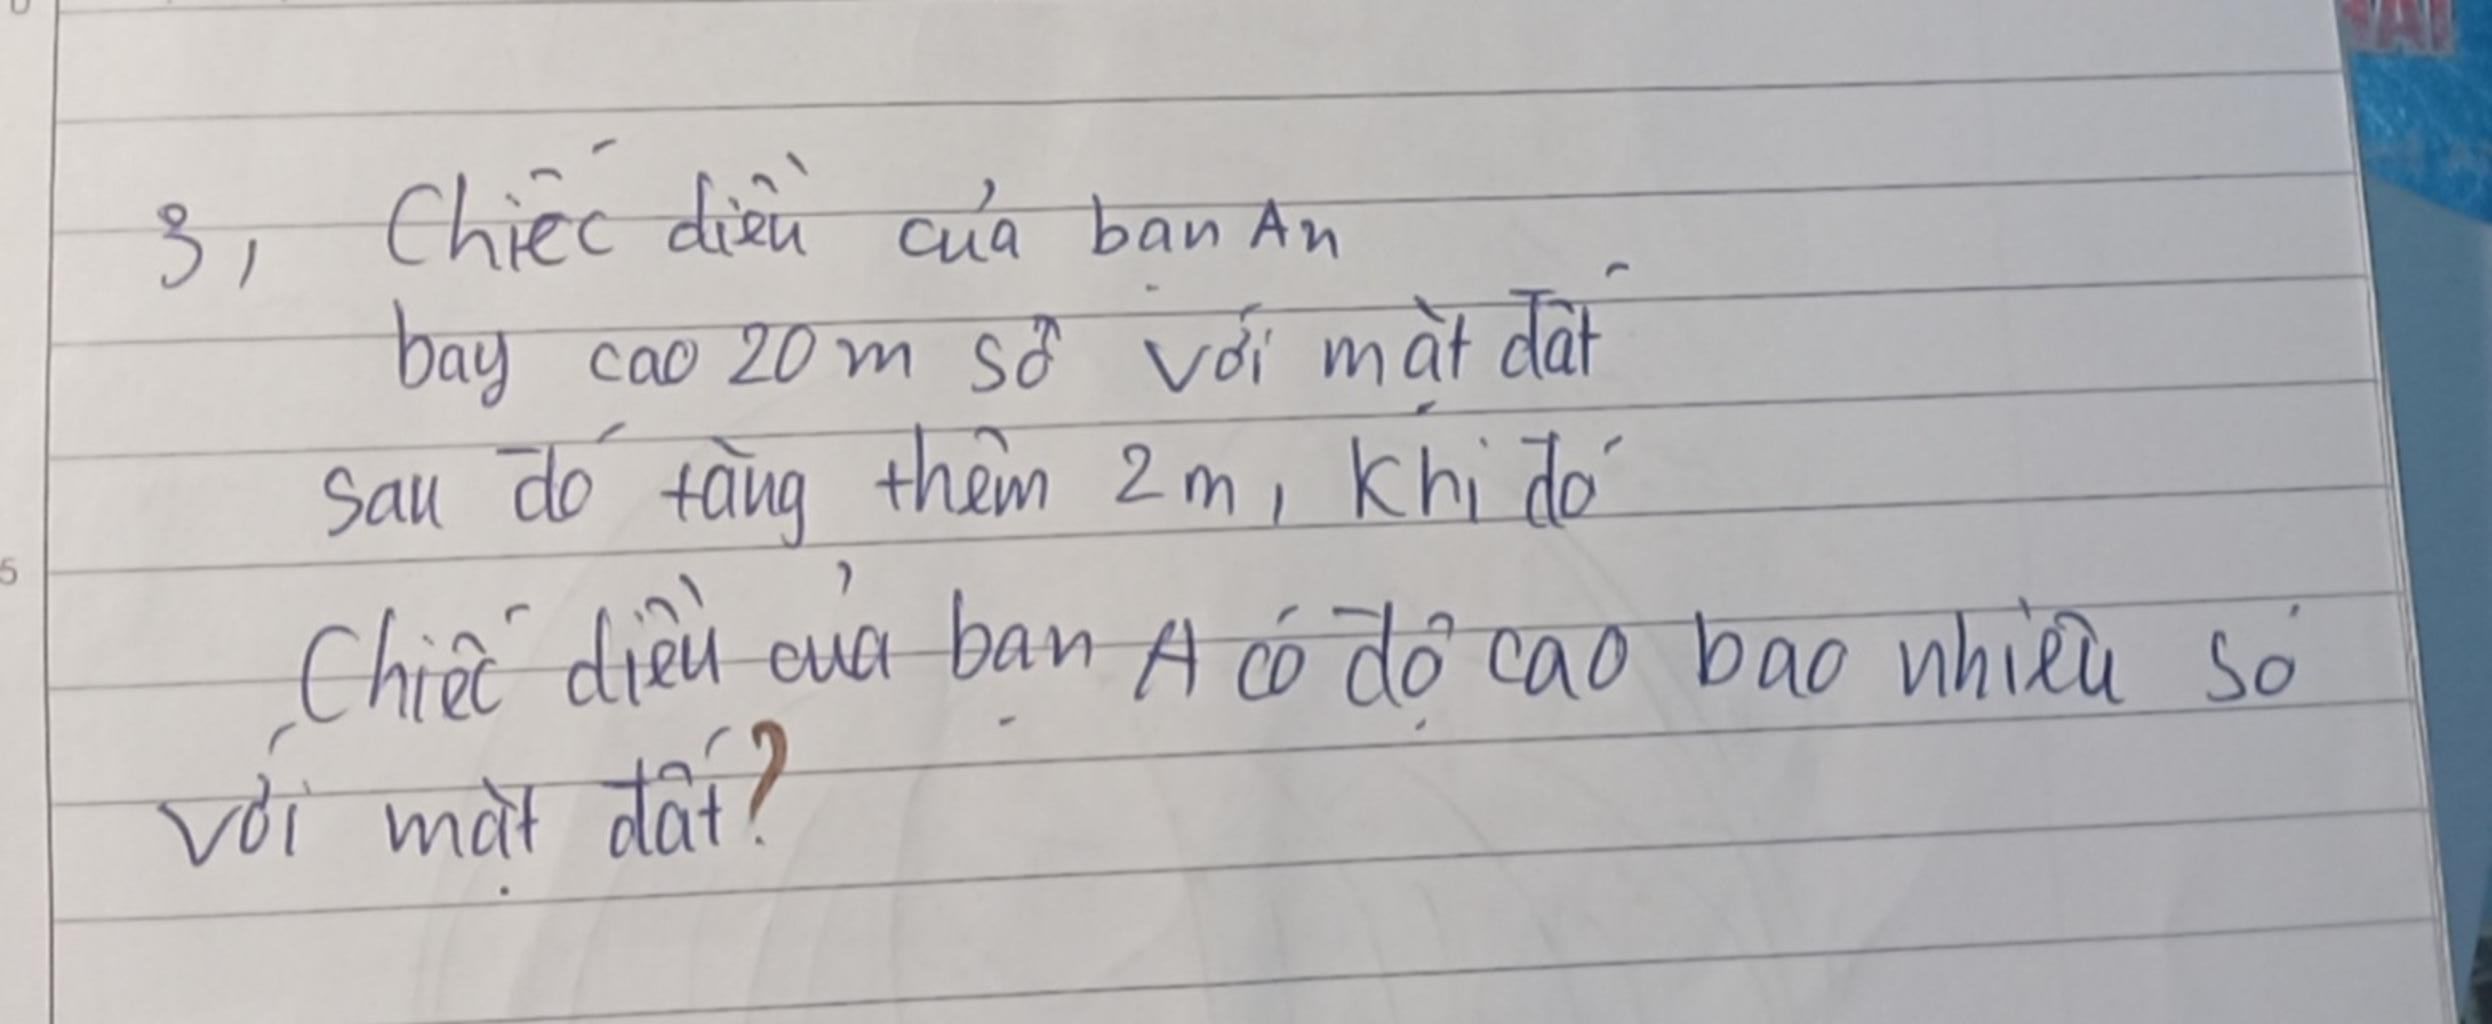 3, Chiếc diều của bạn An
bay cao 20 m so với mặt đất
sau đó tăng thêm 2 m, khi đó
Chiếc diều của bạn A có độ cao bao nhiêu so
với mặt đất?
5